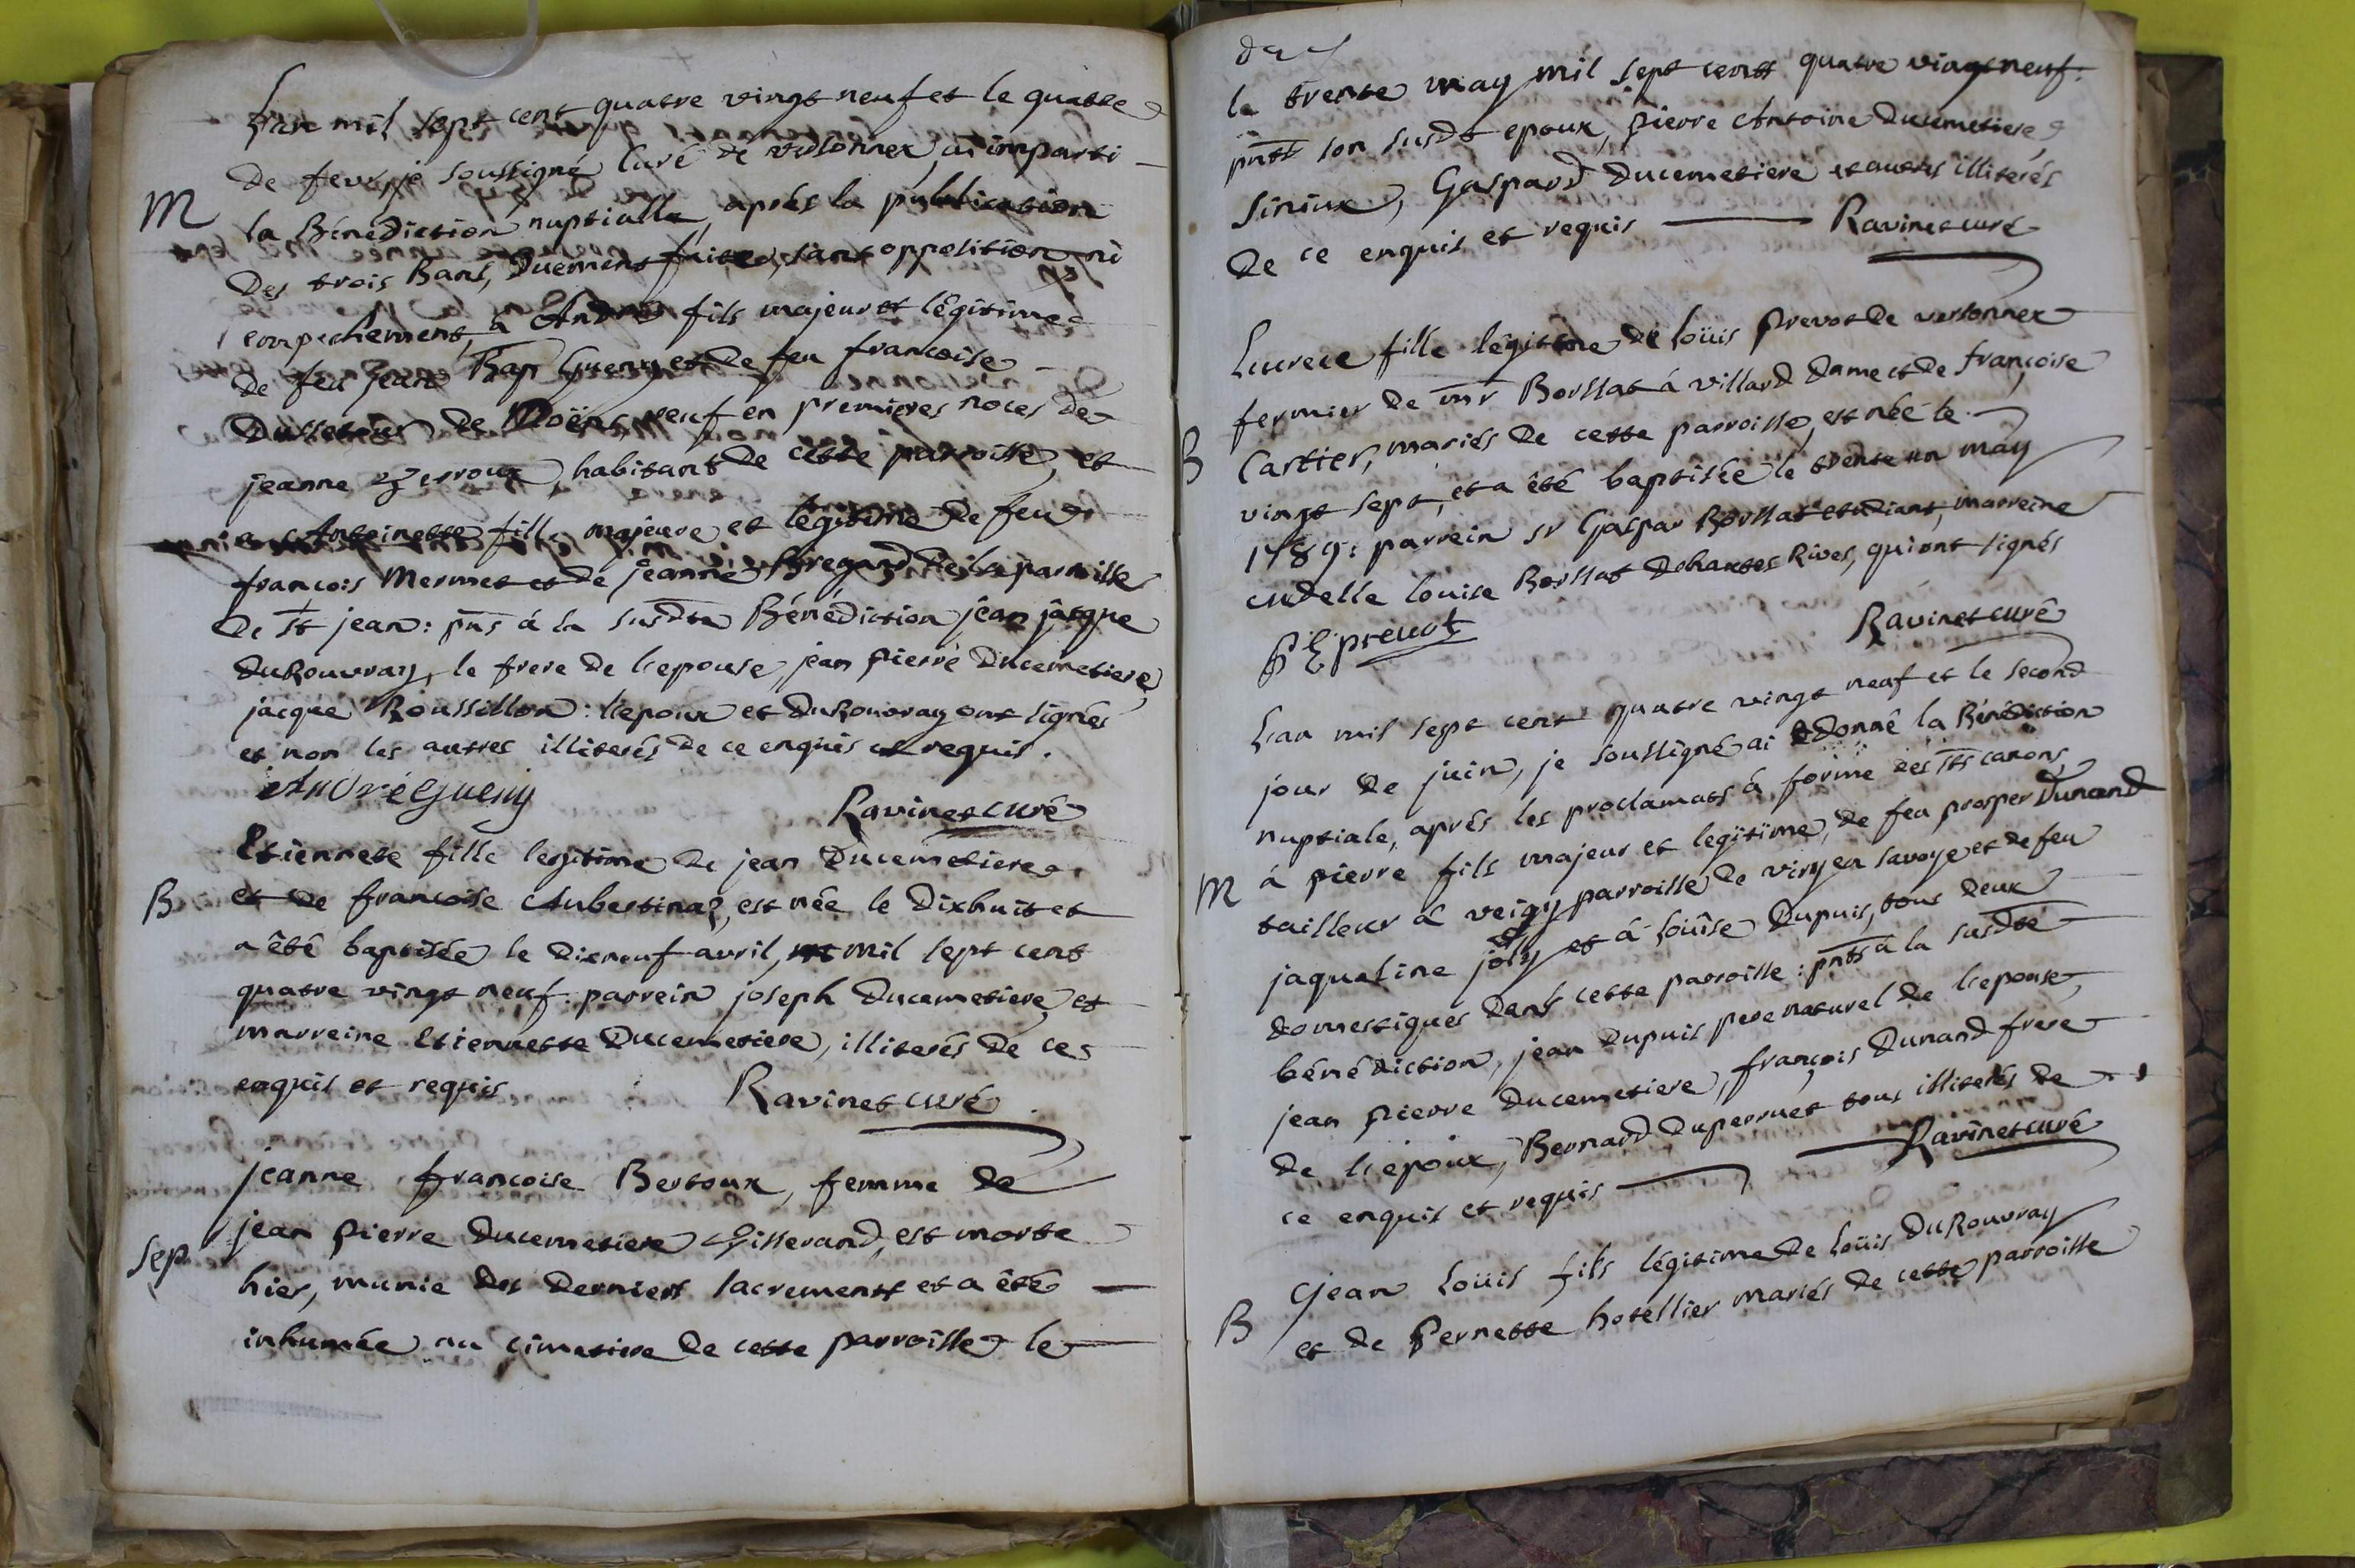 L'an mil sept cent quatre vingt neuf et le quatre
de fevr, je soussigné curé de versonnex ai imparti
M
la Bénédiction nuptialle, aprés la publication
Des trois Bans, Duement faites, sans opposition ni
empechement, à André fils majeur et légitime
de feu jean Bap Gueny et de feu francoise
de veuf en premieres noces de
jeanne habitant de cette parroisse, et
Antoinette fille majeure et légitime de feu
francois Mermet et de jeanne de la parroisse
De St jean : pnts á la susdte Bénédiction jean jacque
DuRouvray, le frere de l'epouse, jean pierre Ducemetiere,
jacque Roussillon : l'epoux et DuRouvray ont signés
et non les autres illiterés de ce enquis et requis.
André Gueny
Ravinet curé
Etiennete fille legitime de jean Ducemetiere
B
et de francoise Aubertinaz, est née le Dixhuit et
a êté baptisée le dixneuf avril, mil sept cent
quatre vingt neuf : parrein joseph Ducemetiere et
marreine Etiennette Ducemetiere, illiterés de ce
enquis et requis
Ravinet curé
jeanne francoise Bertoux, femme de
jean pierre Ducemetiere est morte
Sep
hier, munie des Derniers sacrements et a êté
inhumée au cimetiere de cette parroisse le
le trente may mil sept cent quatre vingt neuf.
pntt son susdt epoux, pierre Antoine Ducemetiere
Gaspard Ducemetiere et autres illiterés
De ce enquis et requis Ravinet curé
Lucrece fille légitime de Loüis Prevot de versonnex
fermier de mr Borssat á villard Dame et de françoise
B
Cartier, mariés de cette parroisse, est née le
vingt sept, et a êté baptisée le trente un may
1789 : parrein sr Gaspar Borssat etudiant, marreine
Louise Borssat Dehautes Rives, qui ont signés
prevot
Ravinet curé
L'an mil sept cent quatre vingt neuf et le second
jour de juin, je soussigné ai donné la Bénédiction
nuptiale, aprés les proclamats á forme des sts canons,
M
á pierre fils majeur et legitime, de feu prosper Dunand
tailleur á veigy parroisse de viry en savoye et de feu
jaqueline joly et á Loüise Dupuis, tous deux
domestiques dans cette parroisse : pnts à la susdte
bénédiction, jean Dupuis pere naturel de l'epouse,
jean pierre Ducemetiere, françois Dunand frere
de l'epoux, Bernard Duperruet tous illiterés de
ce enquis et requis Ravinet curé
jean Loüis fils légitime de Loüis DuRouvray
B
et de Pernette hotellier mariés de cette parroisse